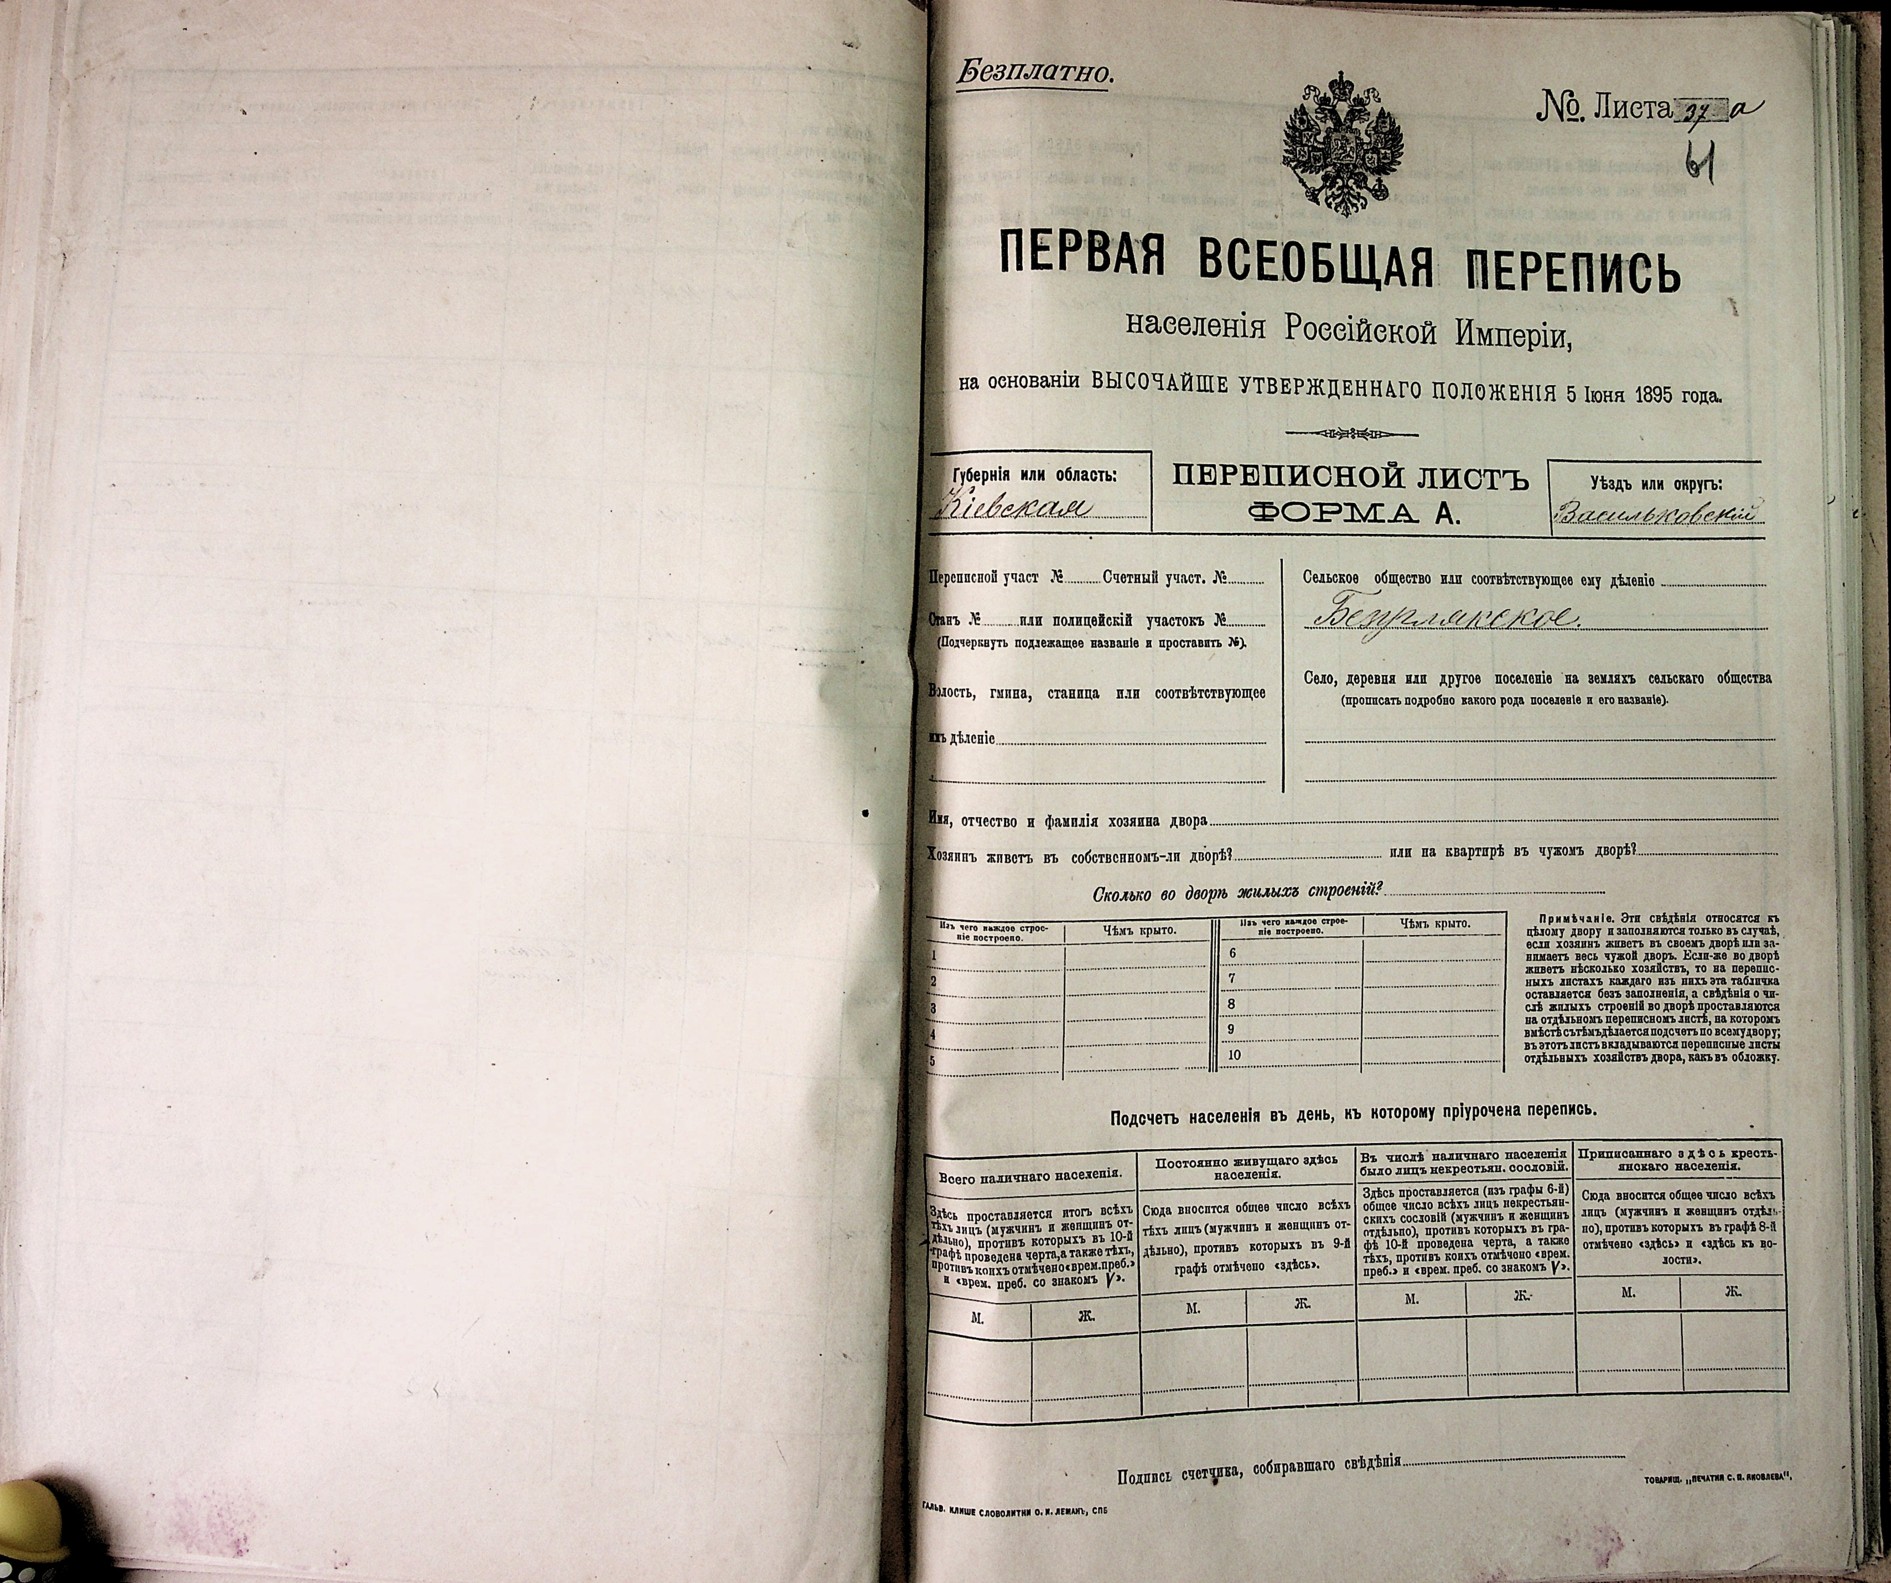 Безплатно.
№. Листа 37 а
61
ПЕРВАЯ ВСЕОБЩАЯ ПЕРЕПИСЬ
населенія Россійской Имперіи,
на основаніи ВЫСОЧАЙШЕ УТВЕРЖДЕННАГО ПОЛОЖЕНІЯ 5 Іюня 1895 года.
Губернія или область:
Кіевская
ПЕРЕПИСНОЙ ЛИСТЪ
ФОРМА А.
Уѣздъ или округъ:
Васильковскій
Переписной участ № Счетный участ. №
Станъ № или полицейскій участокъ №
(Подчеркнуть подлежащее названіе и проставить №).
Волость, гмина, станица или соотвѣтствующее
имъ дѣленіе
Сельское общество или соотвѣтствующее ему дѣленіе
Село, деревня или другое поселеніе на земляхъ сельскаго общества
(прописать подробно какого рода поселеніе и его названіе).
Имя, отчество и фамилія хозяина двора
Хозяинъ живетъ въ собственномъ-ли дворѣ? или на квартирѣ въ чужомъ дворѣ?
Сколько во дворѣ жилыхъ строеній?
Изъ чего каждое строе-
ніе построено.
Чѣмъ крыто.
Изъ чего каждое строе-
ніе построено.
Чѣмъ крыто.
1
2
3
4
5
6
7
8
9
10
Примѣчаніе. Эти свѣдѣнія относятся къ
цѣлому двору и заполняются только въ случаѣ,
если хозяинъ живетъ въ своемъ дворѣ или за-
нимаетъ весь чужой дворъ. Если-же во дворѣ
живетъ нѣсколько хозяйствъ, то на перепис-
ныхъ листахъ каждаго изъ нихъ эта табличка
оставляется безъ заполненія, а свѣдѣнія о чи-
слѣ жилыхъ строеній во дворѣ проставляются
на отдѣльномъ переписномъ листѣ, на которомъ
вмѣстѣ съ тѣмъ дѣлается подсчетъ по всему двору;
въ этотъ листъ вкладываются переписные листы
отдѣльныхъ хозяйствъ двора, какъ въ обложку.
Подсчетъ населенія въ день, къ которому пріурочена перепись.
Всего наличнаго населенія.
Здѣсь проставляется итогъ всѣхъ
тѣхъ лицъ (мужчинъ и женщинъ от-
дѣльно), противъ которыхъ въ 10-й
графѣ проведена черта, а также тѣхъ,
противъ коихъ отмѣчено «врем. преб.»
и «врем. преб. со знакомъ V».
М. Ж.
Постоянно живущаго здѣсь
населенія.
Сюда вносится общее число всѣхъ
тѣхъ лицъ (мужчинъ и женщинъ от-
дѣльно), противъ которыхъ въ 9-й
графѣ отмѣчено «здѣсь».
М. Ж.
Въ числѣ наличнаго населенія
было лицъ некрестьян. сословій.
Здѣсь проставляется (изъ графы 6-й)
общее число всѣхъ лицъ некрестьян-
скихъ сословій (мужчинъ и женщинъ
отдѣльно), противъ которыхъ въ гра-
фѣ 10-й проведена черта, а также
тѣхъ, противъ коихъ отмѣчено «врем.
преб.» и «врем. преб. со знакомъ V».
М. Ж.
Приписаннаго здѣсь кресть-
янскаго населенія.
Сюда вносится общее число всѣхъ
лицъ (мужчинъ и женщинъ отдѣль-
но), противъ которыхъ въ графѣ 8-й
отмѣчено «здѣсь» и «здѣсь къ во-
лости».
М. Ж.
Подпись счетчика, собиравшаго свѣдѣнія
ГАЛЬВ. КЛИШЕ СЛОВОЛИТНИ О. И. ЛЕМАНЪ, СПБ
ТОВАРИЩ. „ПЕЧАТНЯ С. П. ЯКОВЛЕВА“.